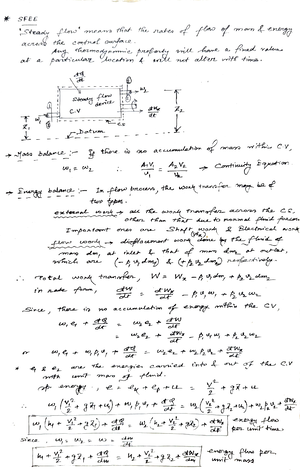 * SFEE
"Steady flow" means that the rates of flow of mass & energy
across the control surface.
Any thermodynamic property will have a fixed value
at a particular location & will not alter with time.
Steady flow
device
C.V
C.S
Z₁
Z₂
Datum
→ Mass balance :- If there is no accumulation of mass within C.V,
w₁ = w₂ ∴ A₁V₁/v₁ = A₂V₂/v₂ → Continuity Equation
→ Energy balance :- In flow process, the work transfer may be of
two types.
external work → all the work transfer across the C.S.
other than that due to normal fluid forces
Important ones are Shaft work & Electrical work
(Wx)
flow work → displacement work done by the fluid of
mass dm₁ at inlet & that of mass dm₂ at outlet
which are (-p₁v₁dm₁) & (+p₂v₂dm₂) respectively.
∴ Total work transfer, W = Wx - p₁v₁dm₁ + p₂v₂dm₂
in rate form, dW/dτ = dWx/dτ - p₁v₁w₁ + p₂v₂w₂
Since, there is no accumulation of energy within the C.V,
w₁e₁ + dQ/dτ = w₂e₂ + dW/dτ
= w₂e₂ + dWx/dτ - p₁v₁w₁ + p₂v₂w₂
or w₁e₁ + w₁p₁v₁ + dQ/dτ = w₂e₂ + w₂p₂v₂ + dWx/dτ
* e₁ & e₂ are the energies carried into & out of the C.V
with unit mass of fluid.
energy, e = ek + ep + u = V²/2 + gZ + u
∴ w₁(V₁²/2 + gZ₁ + u₁) + w₁p₁v₁ + dQ/dτ = w₂(V₂²/2 + gZ₂ + u₂) + w₂p₂v₂ + dWx/dτ
or w₁(h₁ + V₁²/2 + gZ₁) + dQ/dτ = w₂(h₂ + V₂²/2 + gZ₂) + dWx/dτ energy flow per unit time
Since w₁ = w₂ = w = dm/dτ
h₁ + V₁²/2 + gZ₁ + dQ/dm = h₂ + V₂²/2 + gZ₂ + dWx/dm energy flow per unit mass